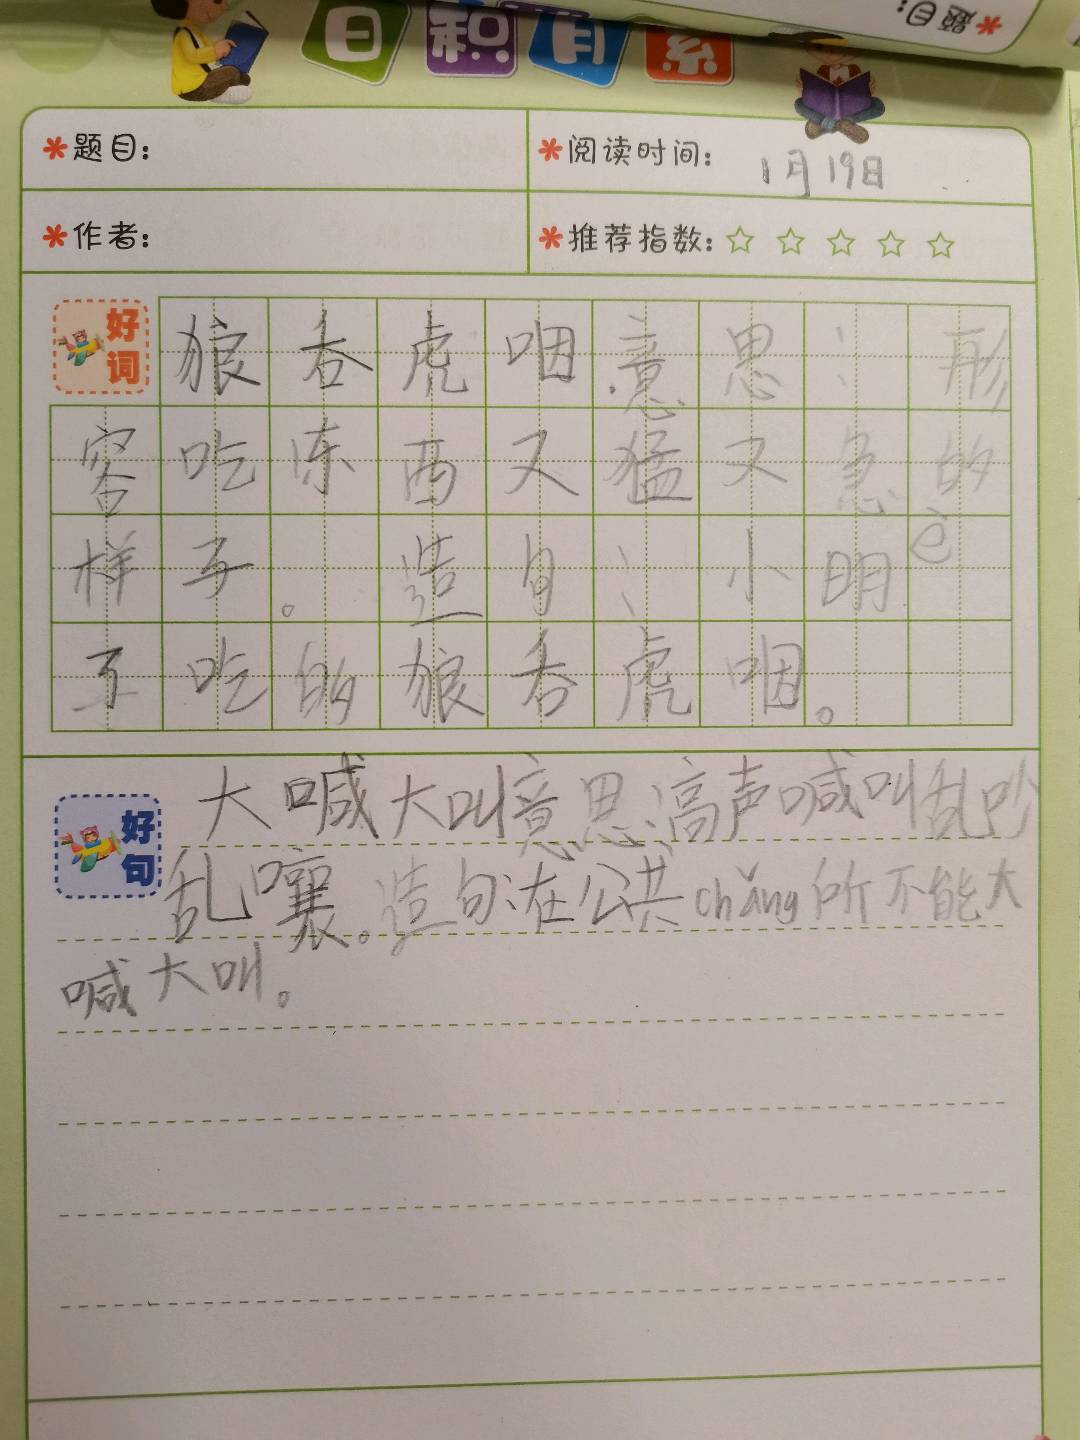 日积月累
题目:
题目:
阅读时间: 1月19日
作者:
推荐指数:
好词
狼吞虎咽意思:形
容吃东西又猛又急的
样子。造句:小明è
了吃的狼吞虎咽。
好句
大喊大叫意思:高声喊叫乱吵
乱嚷。造句:在公共chǎng所不能大
喊大叫。